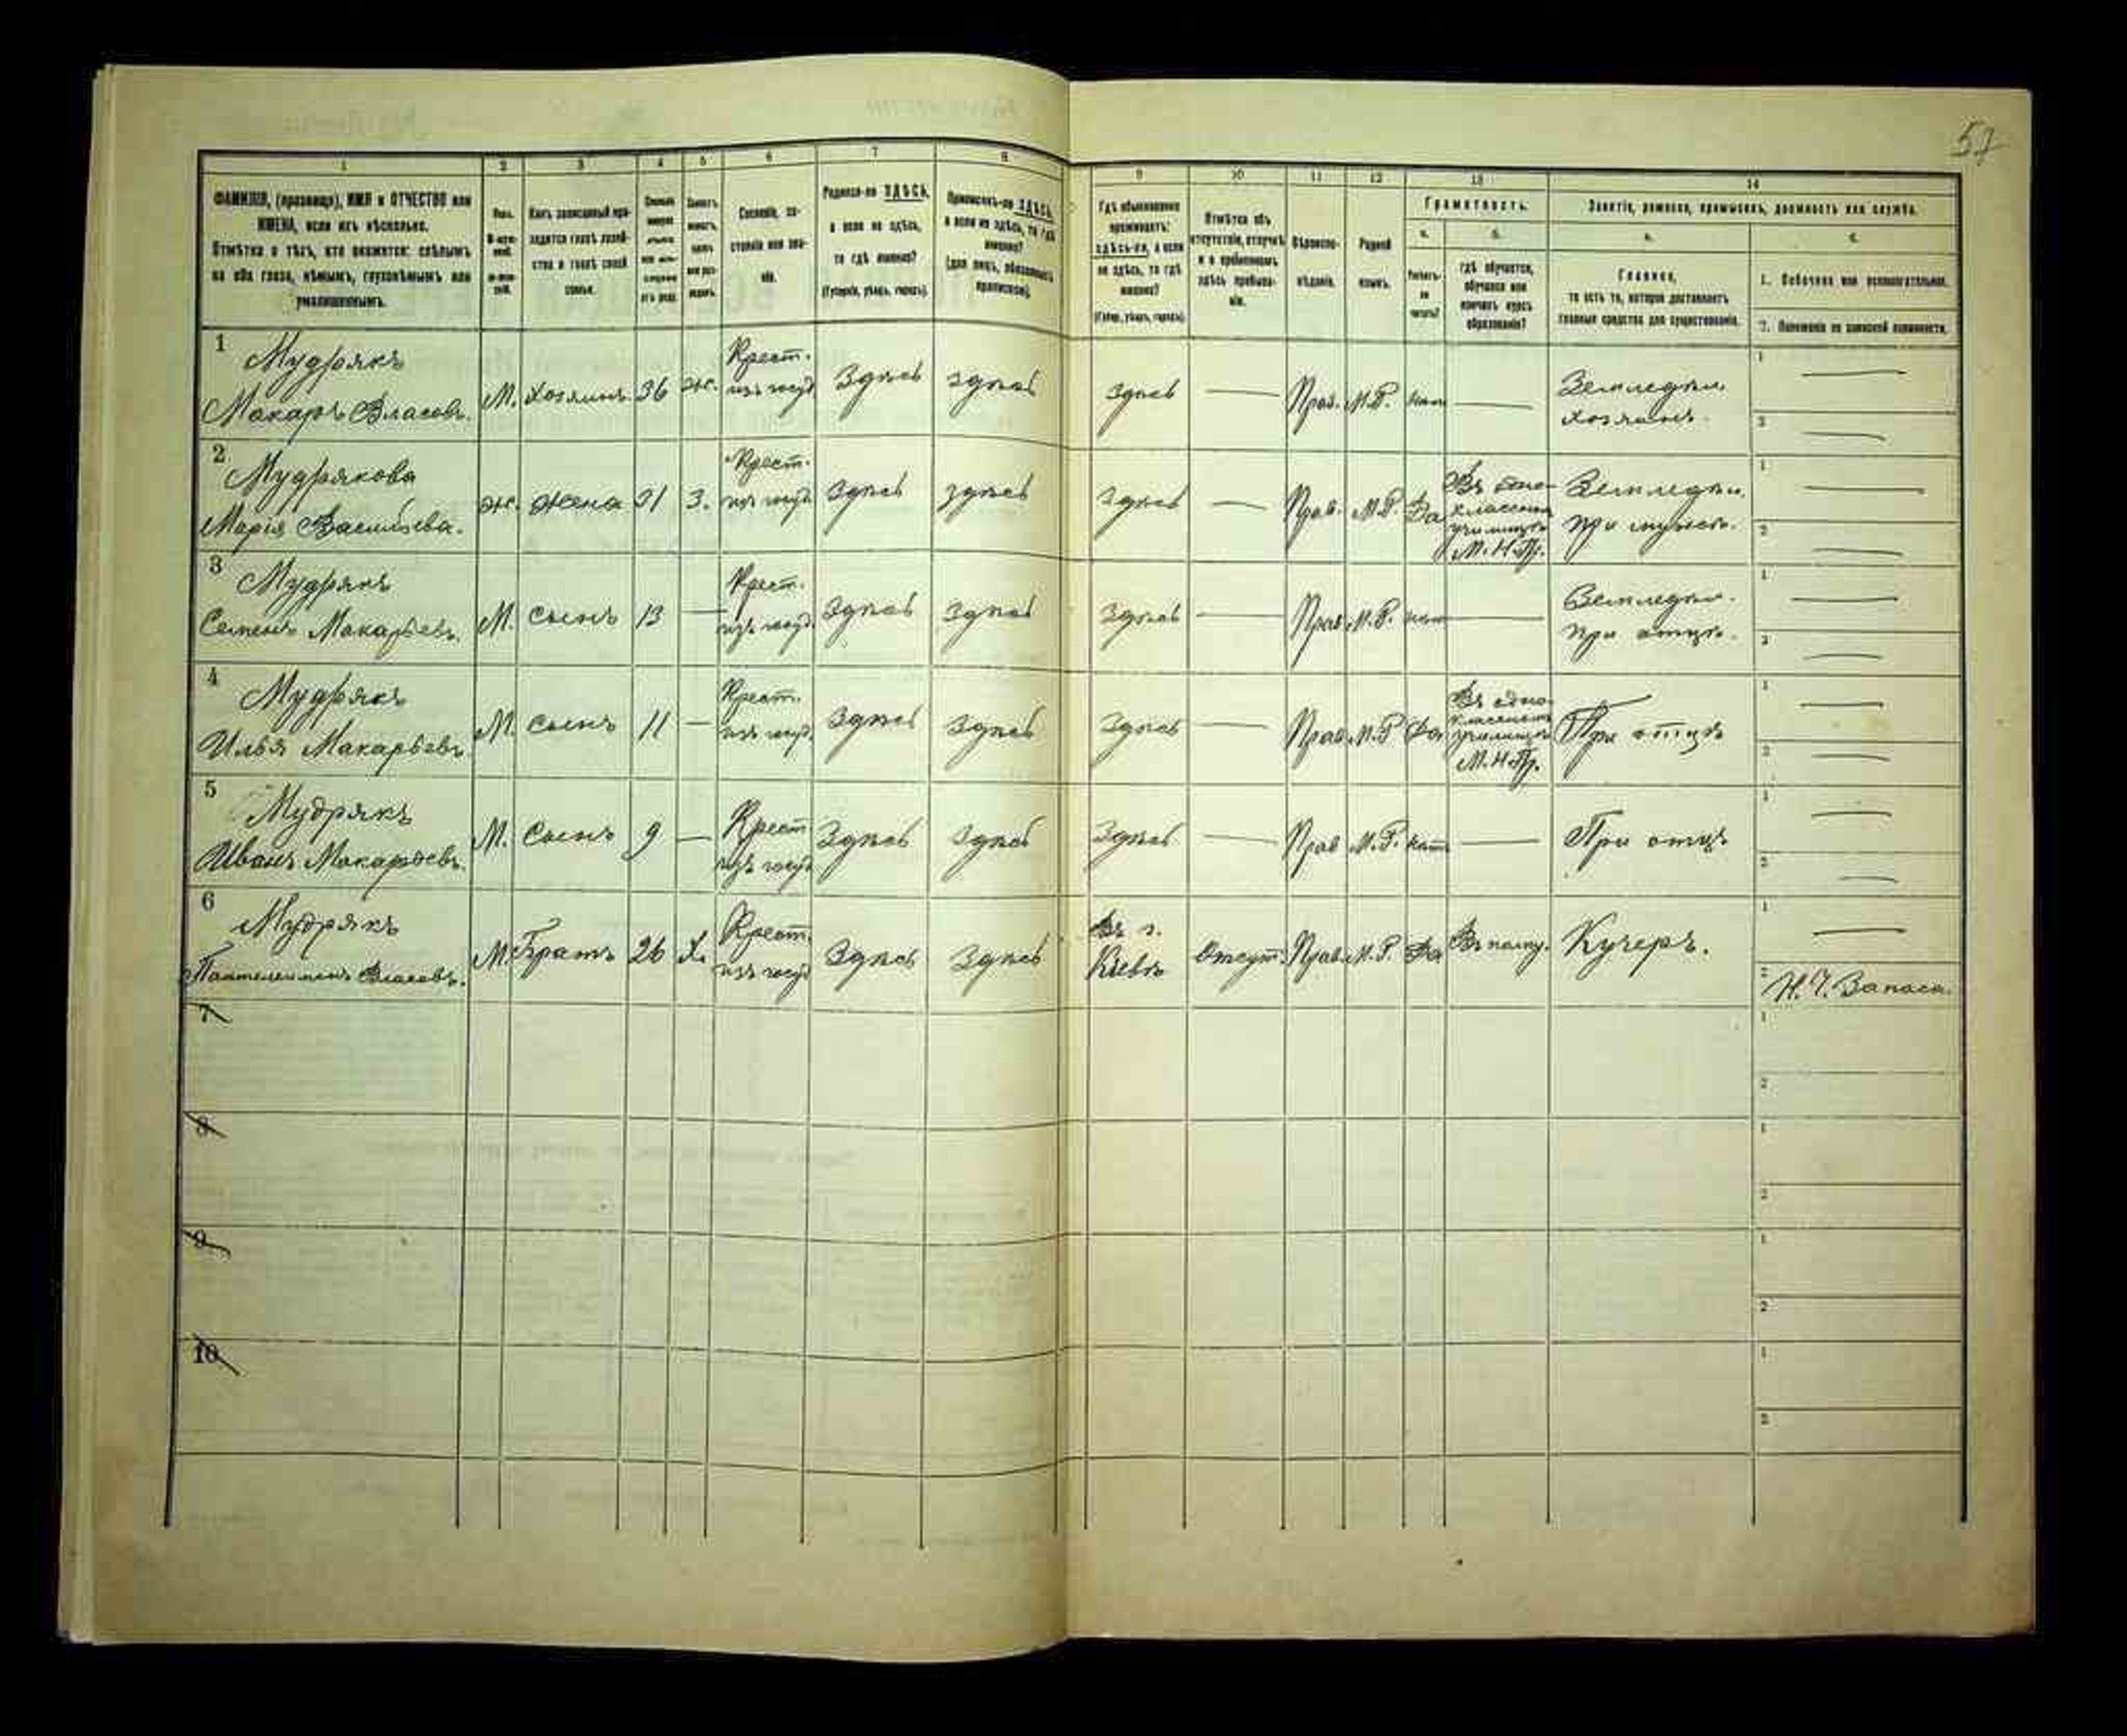 57
1 2 3 4 5 6 7 8 9 10 11 12 13 14
ФАМИЛІЯ, (прозвище), ИМЯ и ОТЧЕСТВО или
ИМЕНА, если ихъ нѣсколько.
Отмѣтка о тѣхъ, кто окажется: слѣпымъ
на оба глаза, нѣмымъ, глухонѣмымъ или
умалишеннымъ.
Полъ.
Какъ записанный при-
ходится главѣ хозяй-
ства и главѣ своей
семьи.
Сословіе, со-
стояніе или зва-
ніе.
Родился-ли ЗДѢСЬ,
а если не здѣсь,
то гдѣ именно?
(Губернія, уѣздъ, городъ).
Приписанъ-ли ЗДѢСЬ,
а если не здѣсь, то гдѣ
именно?
Гдѣ обыкновенно
проживаетъ:
здѣсь-ли, а если
не здѣсь, то гдѣ
именно?
(Губер., уѣздъ, городъ).
Отмѣтка объ
отсутствіи, отлучкѣ
и о временномъ
здѣсь пребыва-
ніи.
Вѣроиспо-
вѣданіе.
Родной
языкъ.
Грамотность.
а. б.
Умѣетъ-
ли
читать?
гдѣ обучается,
обучался или
кончилъ курсъ
образованія?
Занятіе, ремесло, промыселъ, должность или служба.
Главное,
то есть то, которое доставляетъ
главныя средства для существованія.
1. Побочное или вспомогательное.
2. Положеніе по воинской повинности.
1 Мудрякъ
Макаръ Власовъ. М. Хозяинъ 36 ж. Крест. Здѣсь здѣсь здѣсь — Прав. М.Р. нѣт — Земледѣл.
изъ госуд. хозяинъ.
2 Мудрякова
Марія Васильева. ж. жена 31 З. Крест. Здѣсь здѣсь здѣсь — Прав. М.Р. Да Въ одно-
изъ госуд. классном
училищѣ
М.Н.Пр.
Земледѣл.
при мужѣ.
3 Мудрякъ
Семенъ Макарьевъ. М. сынъ 13 — Крест. Здѣсь здѣсь здѣсь — Прав М.Р. нѣт — Земледѣл.
изъ госуд. при отцѣ.
4 Мудрякъ
Илья Макарьевъ М. сынъ 11 — Крест. Здѣсь здѣсь здѣсь — Прав М.Р. Да Въ одно-
изъ госуд. классном
училищѣ
М.Н.Пр.
При отцѣ
5 Мудрякъ
Иванъ Макарьевъ. М. Сынъ 9 — Крест Здѣсь Здѣсь Здѣсь — Прав М.Р. нѣт — При отцѣ
изъ госуд
6 Мудрякъ
Пантелеимонъ Власовъ. М. Братъ 26 Х. Крест. Здѣсь Здѣсь Въ г. Отсут. Прав. М.Р. Да Въ полку. Кучеръ.
изъ госуд Кіевѣ
Н.Ч. Запаса.
7
8
9
10